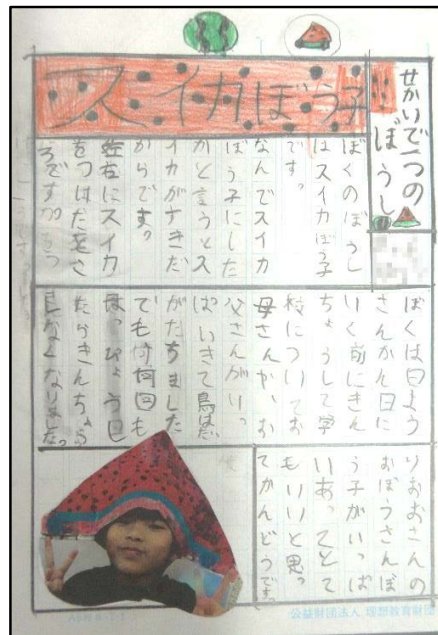 せかいで一つの
ぼうし
スイカぼう子
ぼくのぼうし
はスイカぼう子
です。
なんでスイカ
ぼう子にした
かと言うとス
イカがすきだ
からです。
左右にスイカ
ぼくは日よう
さんかん日に
いく前にきん
ちょうして学
校についてお
母さんか、お
父さんがいっ
ぱいきて鳥はだ
がたちました
でも何回も
はっぴょうし
たらきんちょう
しなくなりました。
りおおさんの
おぼうさんぼ
う子がいっぱ
いあってとて
もいいと思っ
てかんどうです。
公益財団法人 理想教育財団